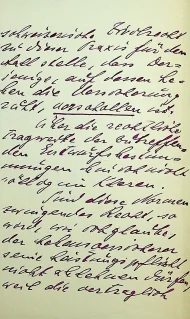 schweizerische Zivilrecht
zu dieser Praxis für den
Fall stelle, dass der-
jenige, auf dessen Le-
ben die Versicherung
ruht, verschollen ist.
Über die rechtliche
Tragweite der betreffen-
den Entwurfsbestim-
mungen kein
völlig im klaren.
Sind diese Normen
zwingendes Recht, so
wird, wir
der Lebensversicherer
seine Leistungspflicht
nicht ablehnen dürfen,
weil die vertraglich